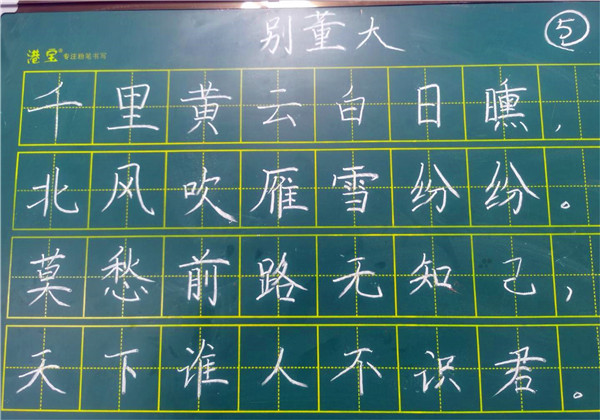 别董大
5
港宝® 专注粉笔书写
千里黄云白日曛，
北风吹雁雪纷纷。
莫愁前路无知己，
天下谁人不识君。